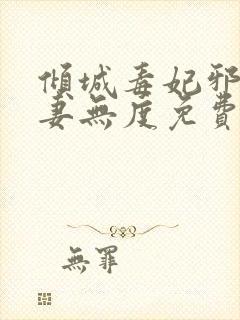 傾城毒妃邪
妻無度免費
無罪